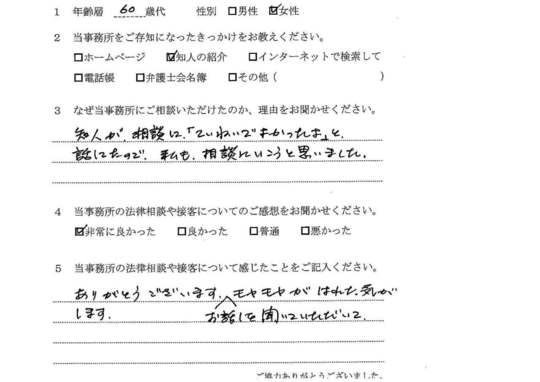 1 年齢層 60 歳代 性別 □男性 ☑女性
2 当事務所をご存知になったきっかけをお教えください。
□ホームページ ☑知人の紹介 □インターネットで検索して
□電話帳 □弁護士会名簿 □その他( )
3 なぜ当事務所にご相談いただけたのか、理由をお聞かせください。
知人が、相談に、「ていねいでよかったよ」と、
話してたので、私も、相談にいこうと思いました。
4 当事務所の法律相談や接客についてのご感想をお聞かせください。
☑非常に良かった □良かった □普通 □悪かった
5 当事務所の法律相談や接客について感じたことをご記入ください。
ありがとうございます。モヤモヤがはれた気が
します。 お話しを聞いていただいて、
ご協力ありがとうございました。